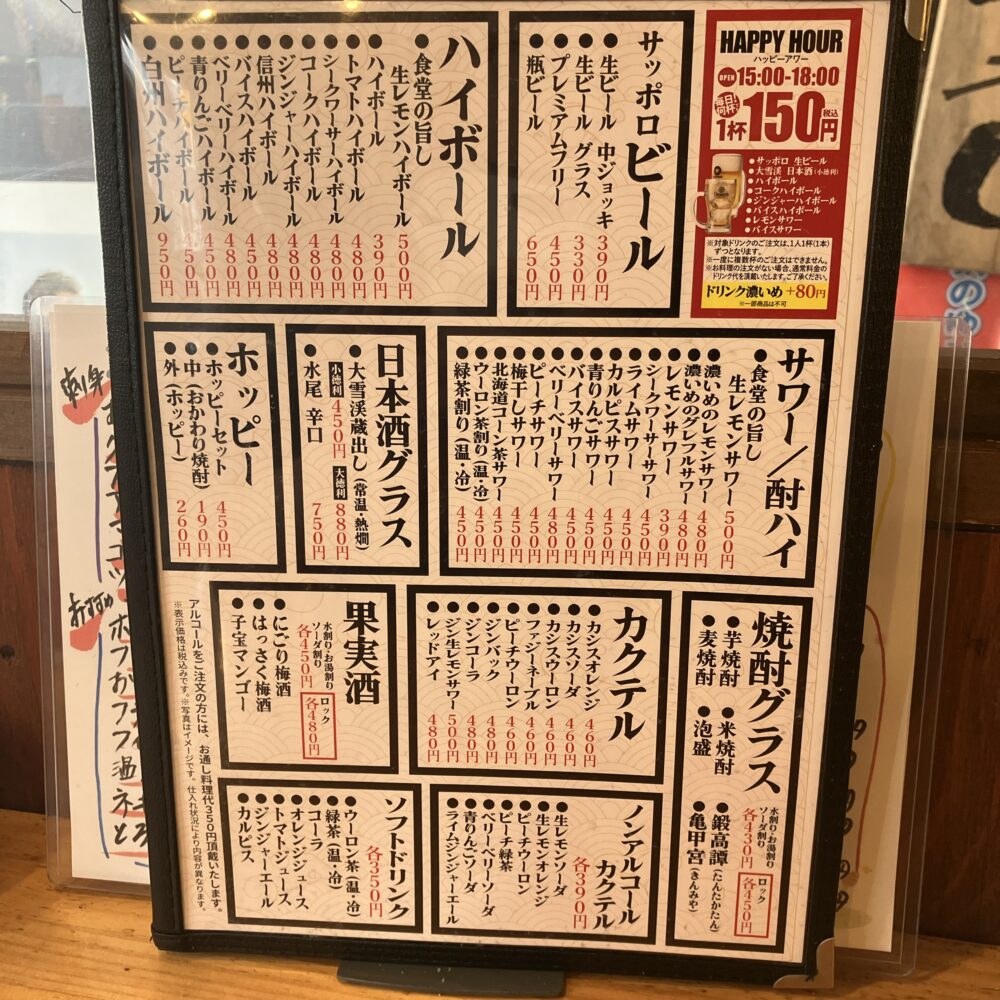 HAPPY HOUR
ハッピーアワー
OPEN 15:00-18:00
毎日!何杯でも
1杯150円税込
●サッポロ 生ビール
●大雪渓 日本酒(小徳利)
●ハイボール
●コークハイボール
●ジンジャーハイボール
●バイスハイボール
●レモンサワー
●バイスサワー
※対象ドリンクのご注文は、1人1杯(1本)ずつとなります。
※一度に複数杯のご注文はできません。
※お料理の注文がない場合、通常料金のドリンク代を頂戴いたします。ご了承ください。
ドリンク濃いめ +80円
※一部商品は不可
サッポロビール
●生ビール 中ジョッキ 390円
●生ビール グラス 330円
●プレミアムフリー 450円
●瓶ビール 650円
ハイボール
●食堂の旨し
生レモンハイボール 500円
●ハイボール 390円
●トマトハイボール 480円
●シークワーサーハイボール 480円
●コークハイボール 480円
●ジンジャーハイボール 480円
●信州ハイボール 480円
●バイスハイボール 480円
●ベリーベリーハイボール 480円
●青りんごハイボール 450円
●ピーチハイボール 450円
●白州ハイボール 950円
サワー/酎ハイ
●食堂の旨し
生レモンサワー 500円
●濃いめのレモンサワー 480円
●濃いめのグレフルサワー 480円
●レモンサワー 390円
●シークワーサーサワー 450円
●ライムサワー 450円
●カルピスサワー 450円
●青りんごサワー 450円
●バイスサワー 450円
●ベリーベリーサワー 480円
●ピーチサワー 450円
●梅干しサワー 450円
●北海道コーン茶サワー 450円
●ウーロン茶割り(温・冷) 450円
●緑茶割り(温・冷) 450円
日本酒グラス
●大雪渓蔵出し(常温・熱燗)
小徳利 450円 大徳利 880円
●水尾 辛口 750円
ホッピー
●ホッピーセット 450円
●中(おかわり焼酎) 190円
●外(ホッピー) 260円
焼酎グラス
●芋焼酎 ●米焼酎 ●鍛高譚(たんたかたん)
●麦焼酎 ●泡盛 ●亀甲宮(きんみや)
水割り・お湯割り
ソーダ割り
各430円
ロック
各450円
カクテル
●カシスオレンジ 460円
●カシスソーダ 460円
●カシスウーロン 460円
●ファジーネーブル 460円
●ピーチウーロン 460円
●ジンバック 480円
●ジンコーラ 480円
●ジン生レモンサワー 500円
●レッドアイ 480円
果実酒
水割り・お湯割り
ソーダ割り
各450円
ロック
各480円
●にごり梅酒
●はっさく梅酒
●子宝マンゴー
ノンアルコール
カクテル
各390円
●生レモンソーダ
●生レモンオレンジ
●ピーチウーロン
●ピーチ緑茶
●ベリーベリーソーダ
●青りんごソーダ
●ライムジンジャーエール
ソフトドリンク
各350円
●ウーロン茶(温・冷)
●緑茶(温・冷)
●コーラ
●オレンジジュース
●トマトジュース
●ジンジャーエール
●カルピス
アルコールをご注文の方には、お通し料理代350円頂戴いたします。
※表示価格は税込みです。※写真はイメージです。仕入れ状況により内容が異なります。
おすすめ